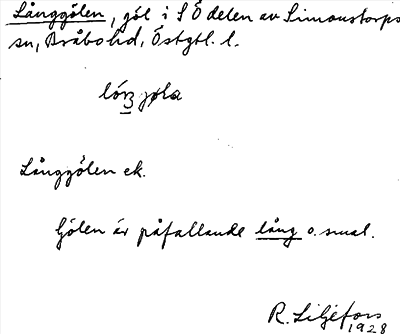 Långgölen, göl i SÖ delen av Simonstorps
sn, Bråbo hd, Östgtl. l.
Långgölen ek.
Gölen är påfallande lång o. smal.
R. Liljefors
1928